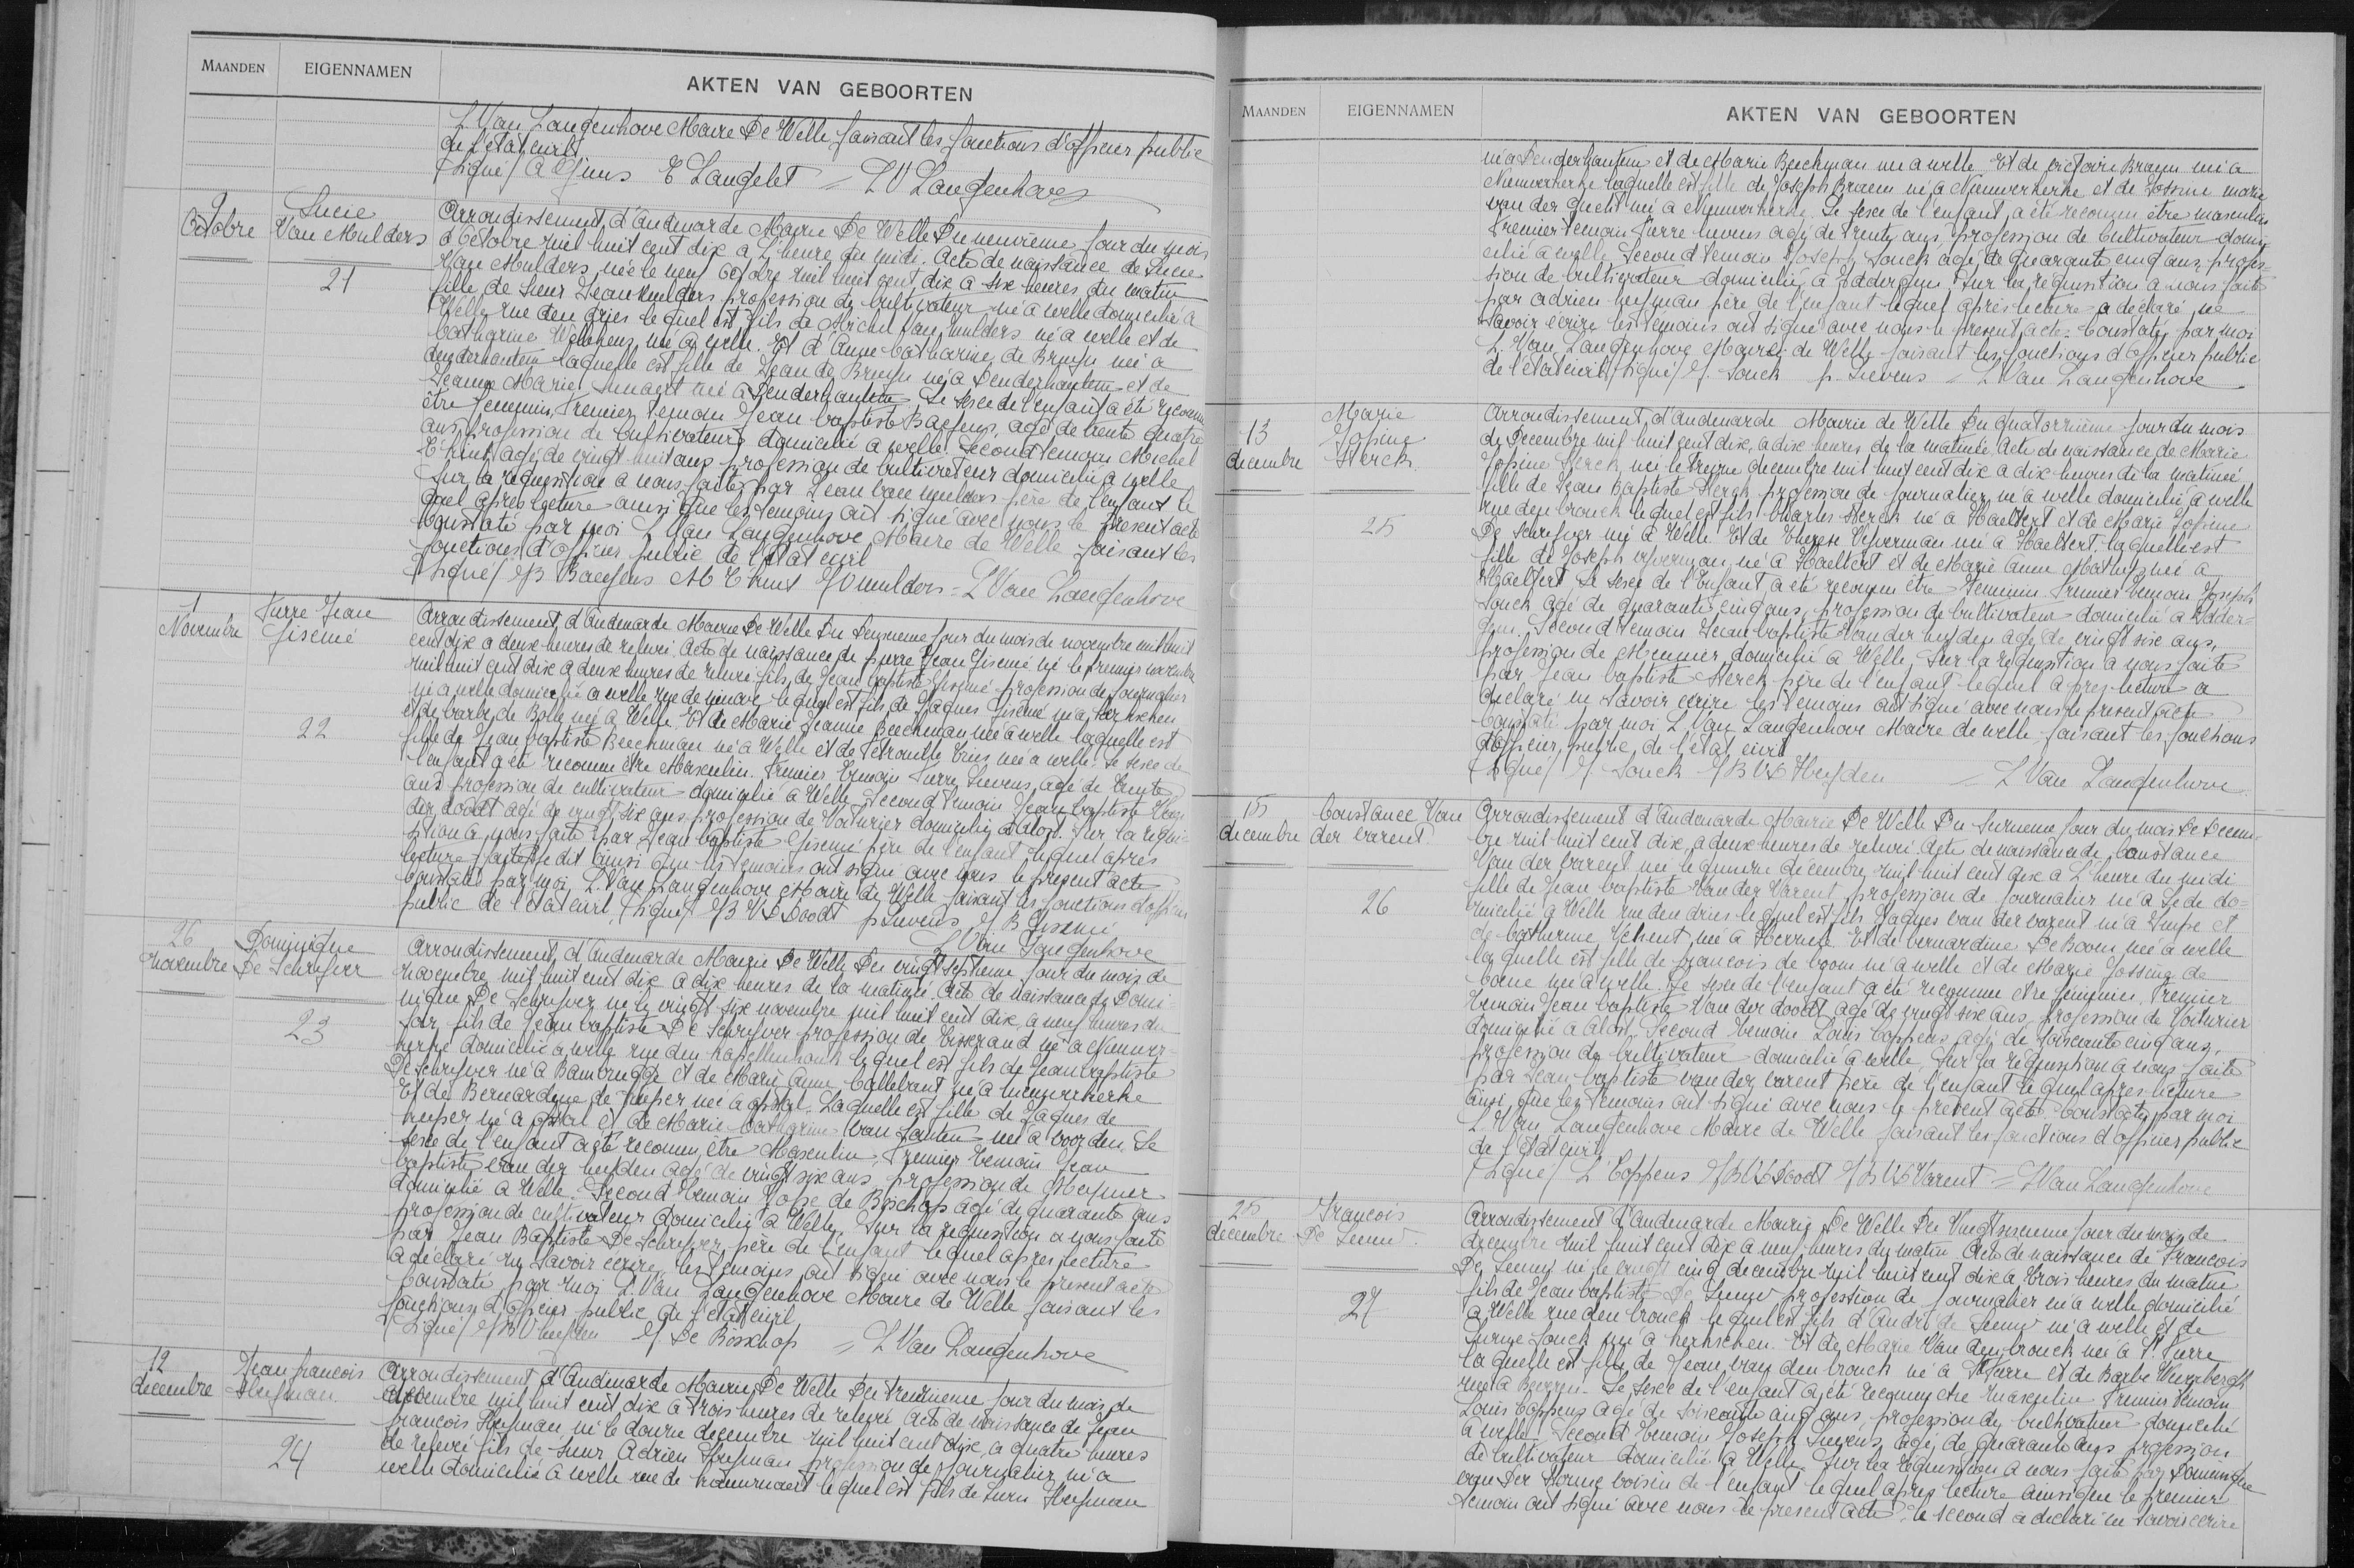 MAANDEN EIGENNAMEN AKTEN VAN GEBOORTEN
L Van Langenhove Maire De Welle faisant les fonctions d'officier public
de l'etat civil
(signé) E Langelet = LV Langenhove
9 Octobre
Lucie Van Mulders
21
Arrondissement d'Audenarde Mairie De Welle Du neuvieme jour du mois
d'Octobre mil huit cent dix a L'heure du midi. Acte de naissance de Lucie
Van Mulders née le neuf octobre mil huit cent dix a six heures du matin
fille de Sieur Jean Mulders profession de cultivateur né a welle domicilié a
Welle rue den dries lequel est fils de Michel Van Mulders né a welle et de
Catharine Welleheus né a welle. Et d'Anne Catharine de Bruyn né a
denderhautem laquelle est fille de Jean de Bruyn né a Denderhautem et de
Jeanne Marie né a Denderhautem Le sexe de l'enfant a été reconnu
être feminin, Premier temoin Jean baptiste Baeyens, agé de trente quatre
ans profession de Cultivateur domicilié a welle. Second temoin Michel
T'Kint agé de vingt huit ans profession de cultivateur domicilié a welle
Sur la requisition a nous faite par Jean van mulders père de l'enfant le
quel apres lecture ainsi que les temoins ont signé avec nous le present acte
Constaté par moi L Van Langenhove Maire de Welle faisant les
fonctions d'officier public de l'etat civil
(signé) JB Baeyens M T'Kint JV mulders = L Van Langenhove
1 Novembre
Pierre Jean Ghisené
22
Arrondissement d'Audenarde Mairie De Welle Du Deuxieme jour du mois de novembre mil huit
cent dix a deux heures de relevé. Acte de naissance de pierre Jean Gisené né le premier novembre
mil huit cent dix a deux heures de relevé fils de Jean baptiste Gisené profession de Journalier
né a welle domicilié a welle rue de lequel est fils de Jaques Gisené né a kerkschen
et de barbe de né a Welle. Et de Marie Jeanne Beeckman née a welle laquelle est
fille de Jean baptiste Beeckman né a Welle et de Petronille né a welle. Le sexe de
l'enfant a été reconnu être Masculin. Premier temoin Pierre Lievens agé de trente
ans profession de cultivateur domicilié a Welle, Second temoin Jean baptiste Van
der doodt agé de vingt six ans profession de Voiturier domicilié a Alost. Sur la requi-
sition a nous faite par Jean baptiste Gisené père de l'enfant lequel après
lecture faite dit ainsi que les temoins ont signé avec nous le present acte
Constaté par moi L. Van Langenhove Maire de Welle faisant les fonctions d'officier
public de l'etat civil (signé) JB VD Doodt p Lievens J. B Gisené
L Van Langenhove
26 Novembre
Dominique De Schryver
23
Arrondissement d'Audenarde Mairie De Welle Du vingt septieme jour du mois de
Novembre mil huit cent dix a dix heures de la matinée. Acte de naissance de Domi
nique De Schryver né le vingt six novembre mil huit cent dix, a neuf heures du
soir, fils de Jean baptiste De Schryver profession de tisserand né a Nieuwer-
kerke domicilié a welle rue den kapellenhoek lequel est fils de Jean baptiste
De Schryver né a Bambrugge et de Marie Anne Callebaut né a nieuwerkerke
Et de Bernardine de kuyper née a opstal. Laquelle est fille de Jaques de
kuyper né a opstal et de Marie Catharine Van Santen né a voorden. Le
sexe de l'enfant a été reconnu être Masculin, Premier temoin Jean
baptiste van der heyden agé de vingt six ans, profession de Meunier
domicilié a Welle. Second temoin Jose de Bischop agé de quarante ans
profession de cultivateur domicilié a Welle. Sur la requisition a nous faite
par Jean Baptiste De Schryver, père de l'enfant lequel apres lecture
a déclaré ne savoir écrire les temoins ont signé avec nous le present acte
Constaté par moi L. Van Langenhove Maire de Welle faisant les
fonctions d'officier public de l'etat civil
(Signé) JB V heyden J. De Bisschop = L Van Langenhove
12 decembre
Jean francois Heyman
24
Arrondissement d'Audenarde Mairie De Welle Du Treizieme jour du mois de
decembre mil huit cent dix a trois heures de relevé acte de naissance de Jean
francois Heyman né le douze decembre mil huit cent dix, a quatre heures
de relevé fils de Sieur Adrien Heyman profession de Journalier né a
welle domicilié a welle rue de lequel est fils de Lieven Heyman
MAANDEN EIGENNAMEN AKTEN VAN GEBOORTEN
né a Denderhautem et de Marie Beeckman né a welle Et de victoire Braem né a
Nieuwerkerke laquelle est fille de Joseph Braem né a Nieuwerkerke et de Josine marie
van der né a Nieuwerkerke. Le sexe de l'enfant a été reconnu être masculin
Premier temoin Pierre Lievens agé de trente ans, profession de Cultivateur domi-
cilié a welle Second temoin Joseph Souck agé de quarante cinq ans, profes-
sion de cultivateur domicilié a Haderghem Sur la requisition a nous faite
par adrien heyman père de l'enfant lequel après lecture a déclaré ne
savoir écrire les temoins ont signé avec nous le present acte. Constaté par moi
L. Van Langenhove Maire de Welle faisant les fonctions d'officier public
de l'etat civil (signé) J. Souck p. Lievens = L Van Langenhove
13 decembre
Marie Josine Sterck
25
Arrondissement d'Audenarde Mairie de Welle Du quatorzieme jour du mois
de Decembre mil huit cent dix, a dix heures de la matinée Acte de naissance de Marie
Josine Sterck née le treize decembre mil huit cent dix a dix heures de la matinée
fille de Jean Baptiste Sterck profession de journalier né a welle domicilié a welle
rue den brouck lequel est fils Charles Sterck né a Haeltert et de Marie Josine
De Schryver né a Welle Et de Therese Uyverman né a Haeltert. laquelle est
fille de Joseph uyverman, né a Haeltert et de Marie Anne Mathys né a
Haeltert Le sexe de l'Enfant a été reconnu être Feminin Premier temoin Joseph
Souck agé de quarante cinq ans, profession de cultivateur domicilié a Hader-
ghem. Second temoin Jean baptiste Van der heyden agé de vingt six ans,
profession de Meunier domicilié a Welle, Sur la requisition a nous faite
par Jean baptiste Sterck père de l'enfant lequel apres lecture a
declaré ne savoir écrire les temoins ont signé avec nous le present acte
Constaté par moi L Van Langenhove Maire de welle faisant les fonctions
d'officier public de l'etat civil
(signé) J Souck JB VD Heyden = L Van Langenhove
15 decembre
Constance Van der varent
26
Arrondissement d'Audenarde Mairie De Welle Du Seizieme jour du mois De Decem-
bre mil huit cent dix, a deux heures de relevé acte de naissance de Constance
Van der varent né le quinze décembre mil huit cent dix a L'heure du midi
fille de Jean baptiste Van der Varent profession de journalier né a Lede do=
micilié a Welle rue den dries lequel est fils Jaques van der varent né a Impe et
de Catherine né a Herzeele Et de bernardine De Boom né a welle
laquelle est fille de francois de boom né a welle et de Marie Jossine de
né a welle. Le sexe de l'enfant a été reconnu être féminin. Premier
temoin Jean baptiste Van der doodt agé de vingt six ans, profession de Voiturier
domicilié a Alost, Second temoin Louis Coppens, agé de soixante cinq ans,
profession de Cultivateur domicilié a welle, Sur la requisition a nous faite
par Jean baptiste van der varent père de l'enfant lequel apres lecture
ainsi que les temoins ont signé avec nous le present acte. Constaté par moi
L. Van Langenhove Maire de Welle faisant les fonctions d'officier public
de l'Etat civil
(Signé) L Coppens JB VD Doodt JB VD Varent = L Van Langenhove
25 decembre
Francois De Leeuw
27
Arrondissement d'Audenarde Mairie De Welle Du Vingt sixieme jour du mois de
decembre mil huit cent dix a neuf heures du matin Acte de naissance de Francois
De Leeuw né le vingt cinq decembre mil huit cent dix a trois heures du matin
fils de Jean baptiste De Leeuw profession de journalier né a welle domicilié
a Welle rue den brouck lequel est fils d'André de Leeuw né a welle et de
Souck né a kerkschen Et de Marie Van den brouck né a St. Pierre
laquelle est fille de Jean, van den brouck né a St Pierre et de Barbe
né a Beveren. Le sexe de l'enfant a été reconnu etre masculin Premier temoin
Louis Coppens agé de soixante cinq ans, profession de cultivateur domicilié
a welle. Second temoin Joseph Lievens agé de quarante ans profession
de Cultivateur domicilié a Welle, Sur la requisition a nous faite par Dominique
van der voisin de l'enfant lequel apres lecture ainsi que le premier
temoin ont signé avec nous le present acte. le second a declaré ne savoir ecrire